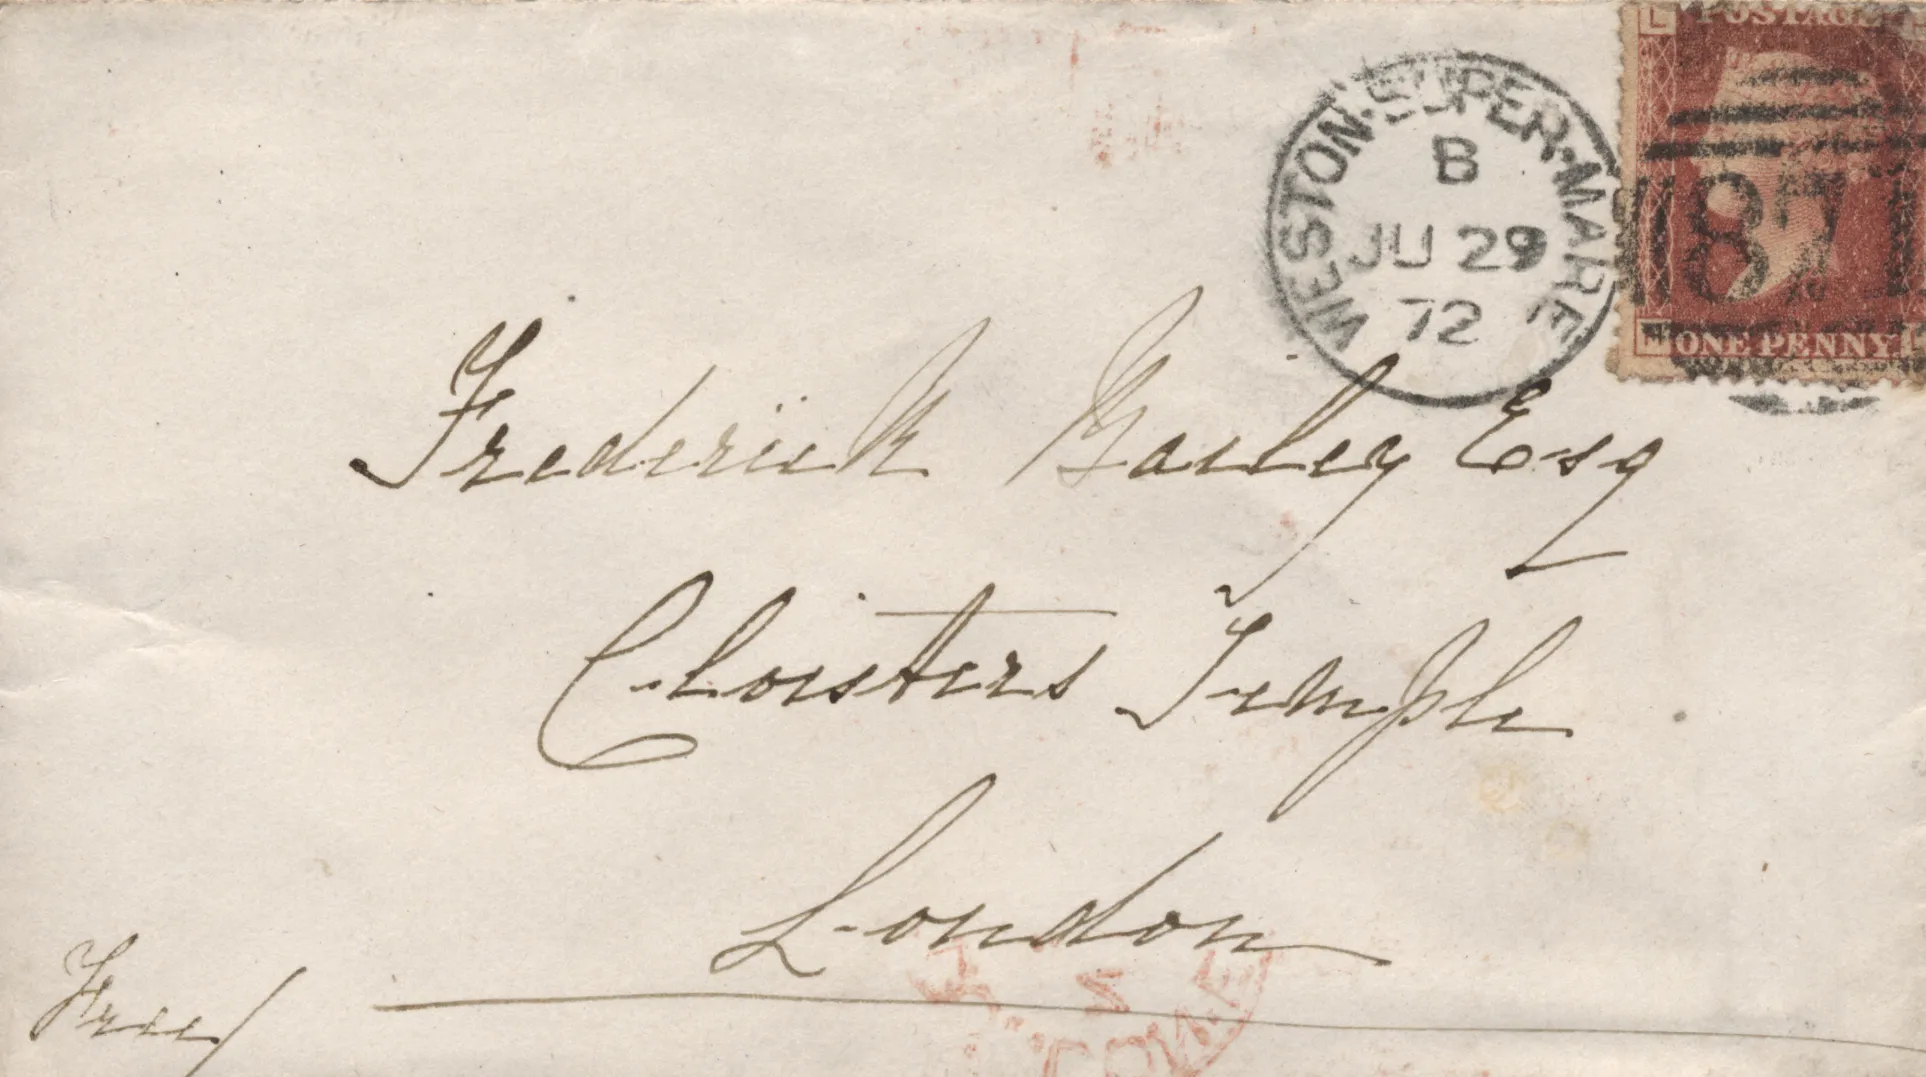 POSTAGE
L
WESTON-SUPER-MARE
B
JU 29
72
871
ONE PENNY
Frederick Bailey Esq
Cloisters Temple
London
Free/